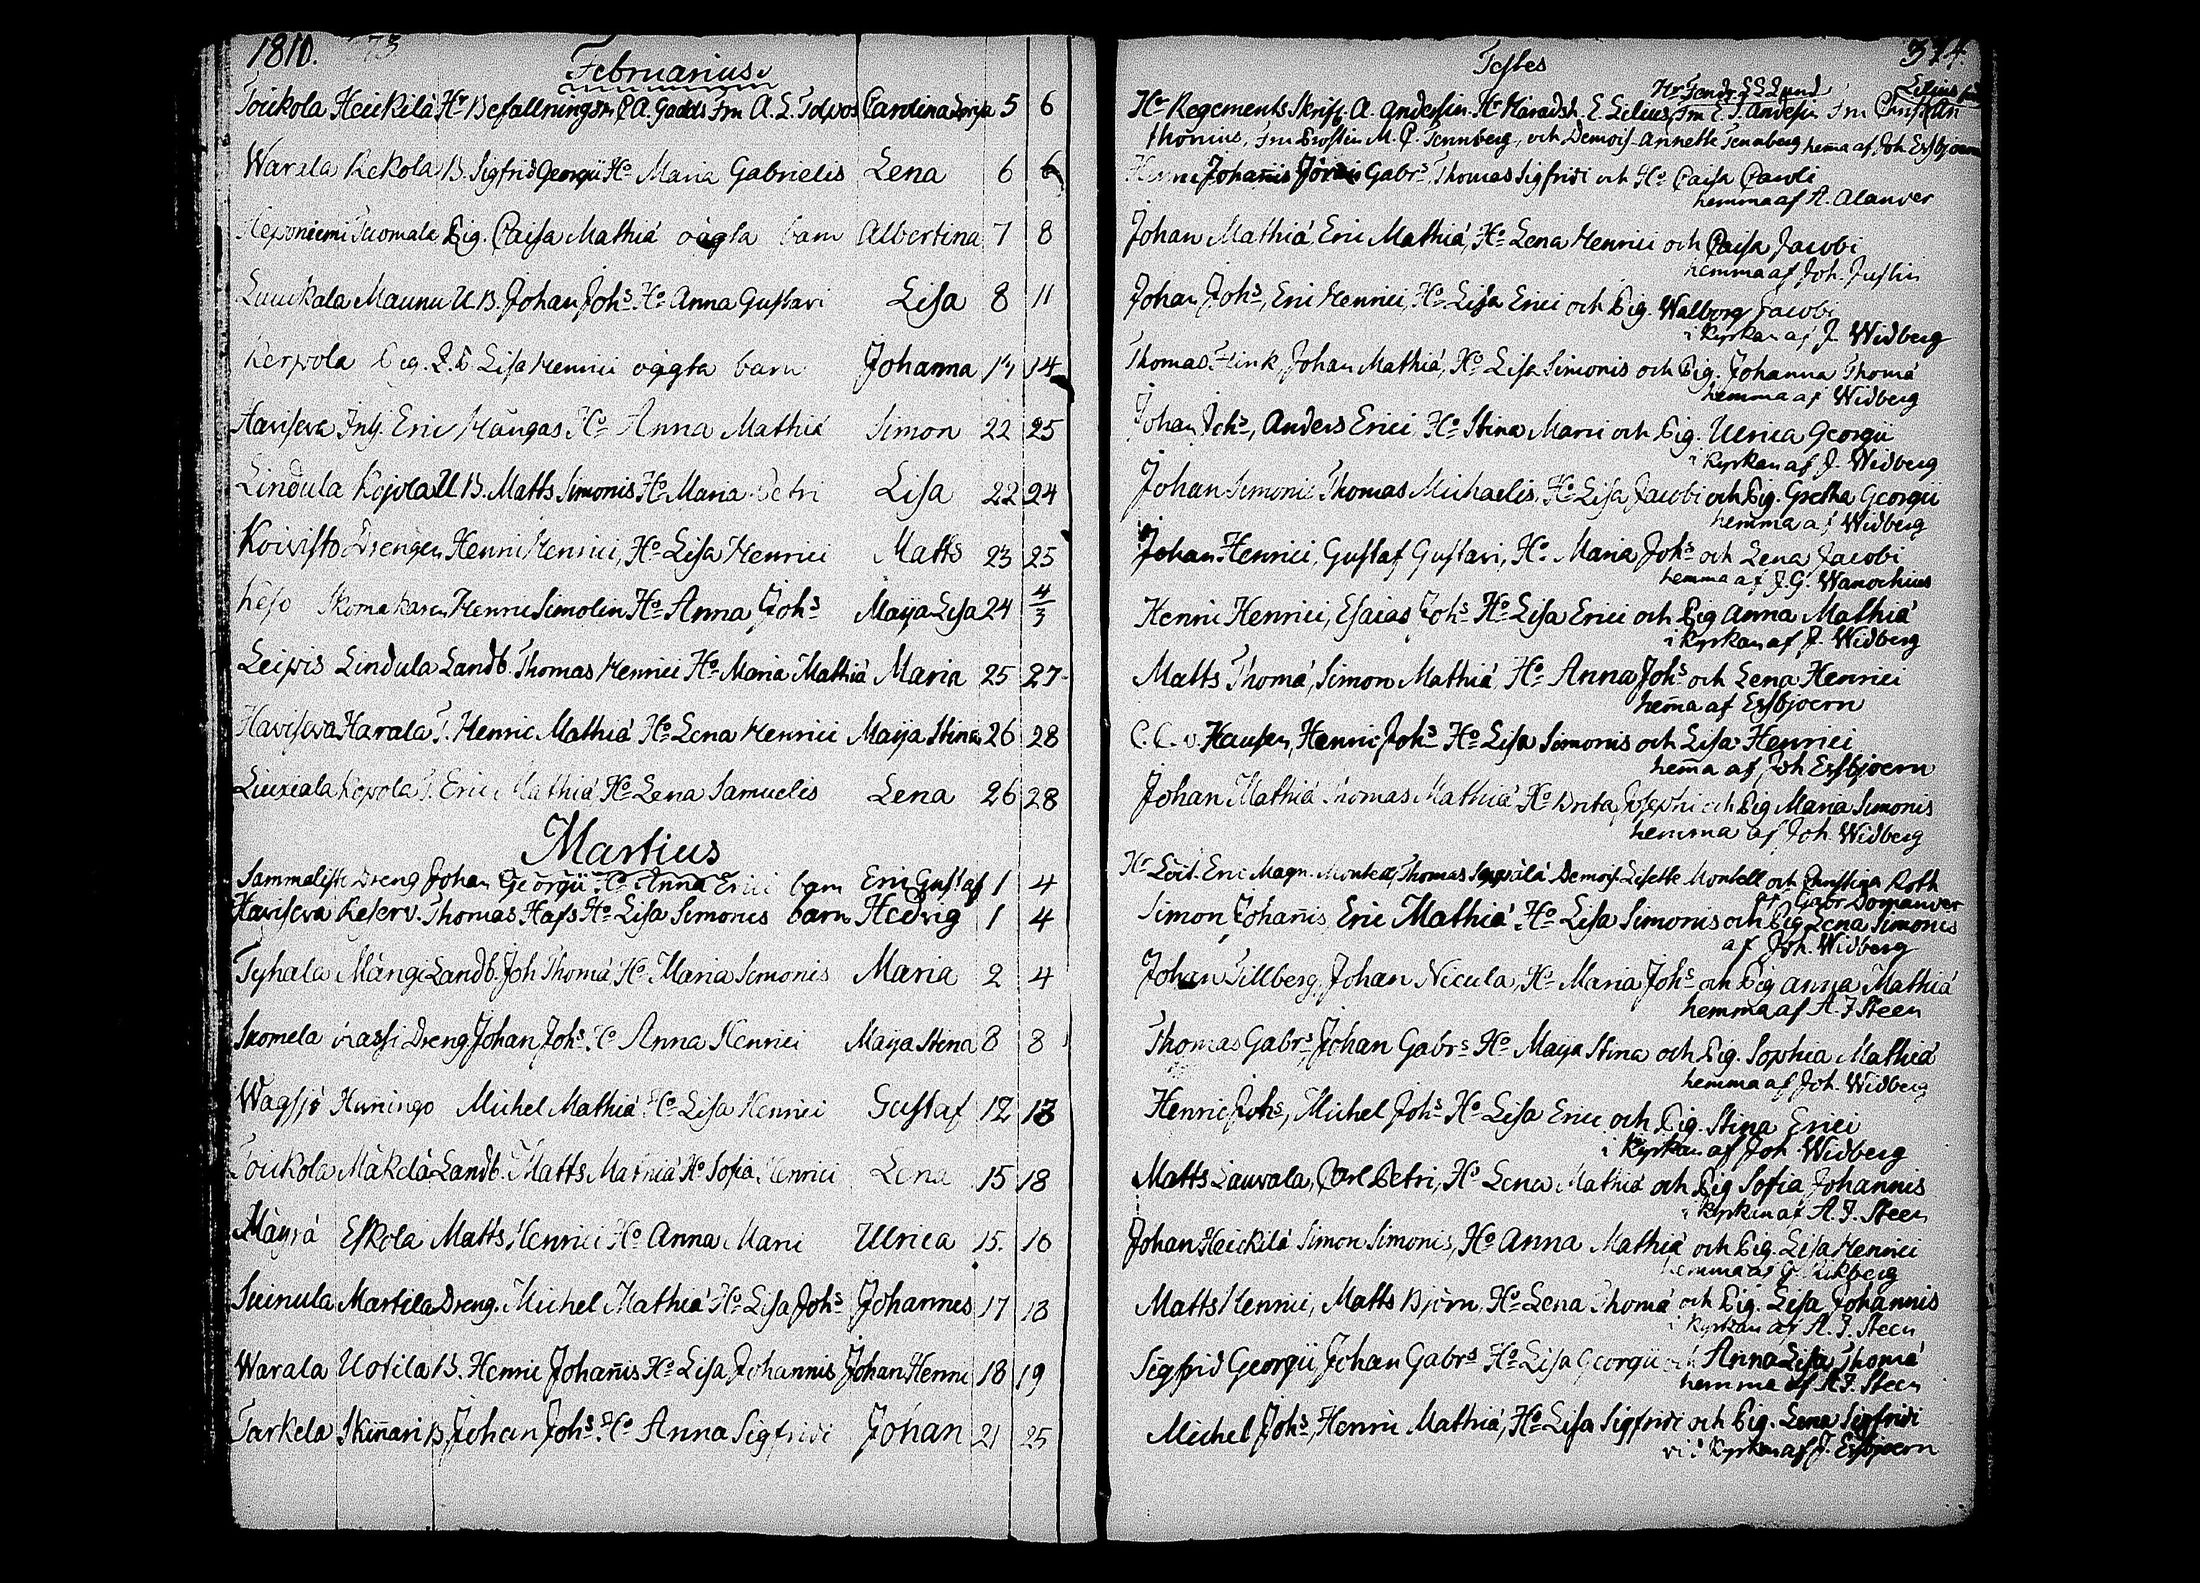 1810.
Februarius
Toickola Heickilä Hr Befallningsm C A. Gadds Fru A. L. Tolpos Carolina Lovisa 5 6
Warala Kekola B. Sigfrid Georgii Ho Maria Gabrielis Lena 6 6
Heponiemi Tuomala Pig. Caisa Mathiæ oägta barn Albertina 7 8
Luuckala Maunu U. B. Johan Johs. Ho Anna Gustavi Lisa 8 11
Kerpola Pig. Lisa Henrici oägta barn Johanna 14 14
Haviseva Inh. Eric Kångas Ho Anna Mathiæ Simon 22 25
Lindula Kojola U B. Matts Simonis Ho Maria Petri Lisa 22 24
Koivisto Drengen Henric Henrici, Ho Lisa Henrici Matts 23 25
Keso Skomakaren Henric Simolin Ho Anna Johs Maija Lisa 24 4/3
Leipis Lindula Landb. Thomas Henrici Ho Maria Mathiæ Maria 25 27
Haviseva Harala T. Henric Mathiæ Ho Lena Henrici Maija Stina 26 28
Liuxiala Kopola T. Eric Mathiæ Ho Lena Samuelis Lena 26 28
Martius
Sammalisto Dreng Johan Georgii Ho Anna Erici barn Eric Gustaf 1 4
Haviseva Reserv. Thomas Hafs Ho Lisa Simonis barn Hedvig 1 4
Tyhala Mångi Landb. Joh Thomæ Ho Maria Simonis Maria 2 4
Suomela Kassi Dreng Johan Johs. Ho Anna Henrici Maija Stina 8 8
Wågsjö Huningo Michel Mathiæ Ho Lisa Henrici Gustaf 12 13
Toickola Mäkelä Landb. Matts Mathiæ Ho Sofia Henrici Lena 15 18
Mäyrä Eskola Matts Henrici Ho Anna Marci Ulrica 15. 16
Suinula Martila Dreng. Michel Mathiæ Ho Lisa Johs Johannes 17 18
Warala Uotila B. Henric Johan̄is Ho Lisa Johannis Johan Henric 18 19
Tarkela Skin̄ari B. Johan Johs. Ho Anna Sigfridi Johan 21 25
Testes
374.
Hr Fendr. Lund Lilius
Hr Regements Skrifv. A. Andersin. Hr Häradsh. E. Lilius, Fru E. J. Andersin Fru
Thönius, Fru M. C. Tennberg, och Demois. Annette Tennberg hemma af Joh. Essbjoern
Johan̄is Gabrs, Thomas Sigfridi och Ho Caisa Pauli
hemma af A. Alander
Johan Mathiæ, Eric Mathiæ, Ho Lena Henrici och Caisa Jacobi
hemma af Joh. Justin
Johan Johs, Eric Henrici, Ho Lisa Erici och Pig. Walborg Jacobi
i Kyrkan af J. Widberg
Thomas Flink, Johan Mathiæ, Ho Lisa Simonis och Pig. Johanna Thomæ
hemma af Widberg
Johan Johs, Anders Erici Ho Stina Marci och Pig. Ulrica Georgii
i Kyrkan af J. Widberg
Johan Simonis Thomas Michaelis, Ho Lisa Jacobi och Pig. Gretha Georgii
hemma af Widberg
Johan Henrici, Gustaf Gustavi, Ho Maria Johs och Lena Jacobi
hemma af J. G. Wanochius
Henric Henrici, Esaias Johs Ho Lisa Erici och Pig Anna Mathiæ
i Kyrkan af J. Widberg
Matts Thomæ, Simon Mathiæ, Ho Anna Johs och Lena Henrici
hem̄a af Essbjoern
C. C. v. Hausen, Henric Johs Ho Lisa Simonis och Lisa Henrici
hem̄a af Joh Essbjoern
Johan Mathiæ Thomas Mathiæ Ho Brita Josephi och Pig Maria Simonis
hemma af Joh. Widberg
Hr Löit. Eric Magn. Montell, Thomas Seppälä Demois. Lisette Montell och Christina Roth
af Gabr Domander
Simon Johan̄is, Eric Mathiæ Ho Lisa Simonis och Pig Lena Simonis
af Joh. Widberg
Johan Tillberg, Johan Nicula, Ho Maria Johs och Pig Anna Mathiæ
hemma af A. J Steen
Thomas Gabrs, Johan Gabrs Ho Maija Stina och Pig. Sophia Mathiæ
hemma af Joh. Widberg
Henric Johs, Michel Johs Ho Lisa Erici och Pig. Stina Erici
i Kyrkan af Joh Widberg
Matts Lauvala, Carl Petri, Ho Lena Mathiæ och Pig Sofia Johannis
i Kyrkan af A. J. Steen
Johan Heickilä Simon Simonis, Ho Anna Mathiæ och Pig. Lisa Henrici
hemma af G. Rikberg
Matts Henrici, Matts Björn, Ho Lena Thomæ och Pig. Lisa Johannis
i Kyrkan af A. J. Steen
Sigfrid Georgii, Johan Gabrs Ho Lisa Georgii och Anna Lisa Thomæ
hemma af A J. Steen
Michel Johs, Henric Mathiæ, Ho Lisa Sigfridi och Pig. Lena Sigfridi
i Kyrkan af J. Essbjoern